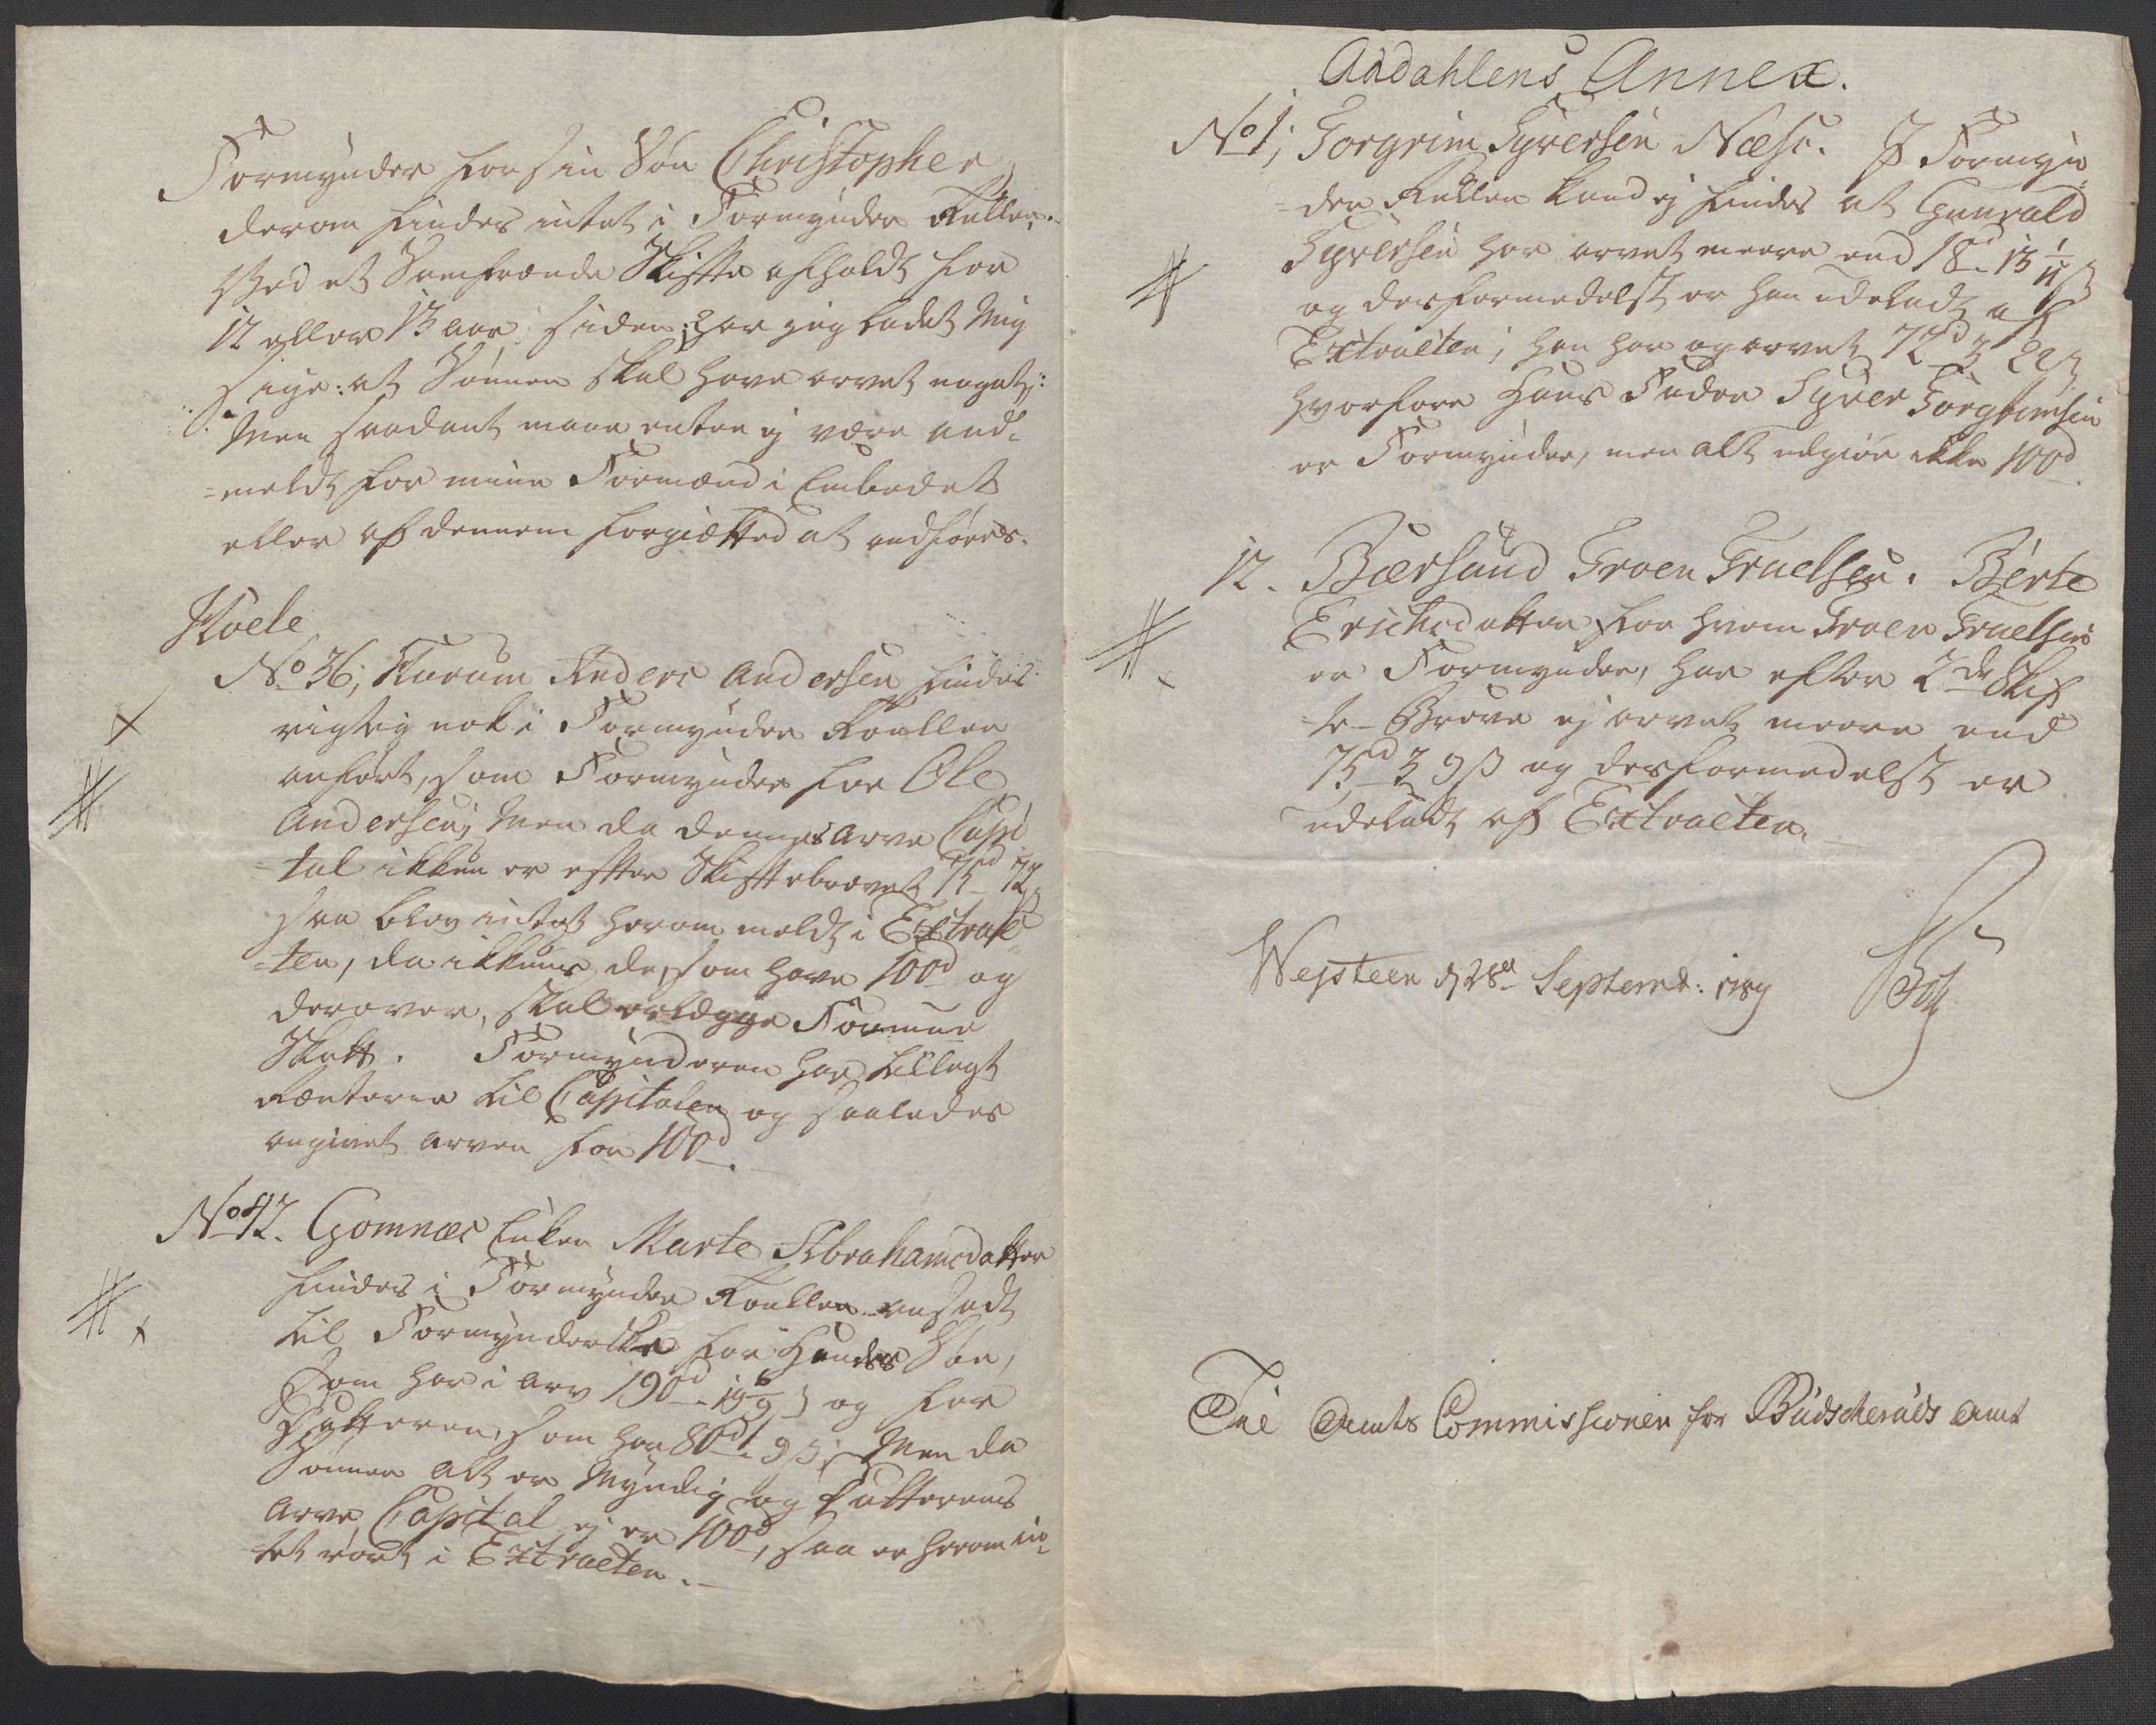 Formynder for sin Søn Christopher
derom findes intet i Formynder Rullen.
Ved et Samfrænde Skifte afholdt for
12 eller 13 aar siden, har jeg ladet mig
sige: at Sønnen skal have arvet noget;
Men saadant maae enten ej være and-
=meldt for mine Formænd i Embedet
eller af dennem forgiætted at andføres.
Hoele
No 36, Rurum Anders Andersen findes
rigtig nok i Formynder Roullen
anført, som Formynder for Ole
Andersen, Men da dennes Arve Capi
=tal ikkun er efter Skiftebrevet 75d 12s
saa blev intet herom meldt i Extrac
=ten, da ikkuns de, som have 100d og
derover, skal erlægge Formue
Skatt. Formynderen har tillagt
Renterne til Capitalen og saaledes
angivet arven for 100d.
No 42. Gomnæs Enken Marte Abrahamsdatter
findes i Formynder Roullen ansadt
til Formynderske for Hendes Søn,
som har i Arv 190d - 19 6/9 s og for
Datteren, som har 80d 1. 9 s; Men da
Sønnen alt er Myndig og Datterens
Arve Capital ej er 100d, saa er herom in-
tet rørt i Extracten.
Aadahlens Annex.
No 1, Torgrim Syversen Næse. I Formyn
=der Rullen kand ej findes at Gunvald
Syversen har arvet meere end 18d. 13 1/11 s
og desformedelst er han udeladt af
Extracten; han har og arvet 72d 3 22 s
hvorfore Hans Fader Syver Torgrimsen
er Formynder, men alt udgiør ikke 100d
12. Bærsund Troen Truelsen. Berte
Erichsdatter for hvem Troen Truelsen
er Formynder, har efter 2de Skif
=te-Breve ej arvet meere end
75d 3 9 s og desformedelst er
udeladt af Extracten.
Wejsteen d. 28de Septembr: 1789
Til Amts Commissionen for Budscheruds Amt